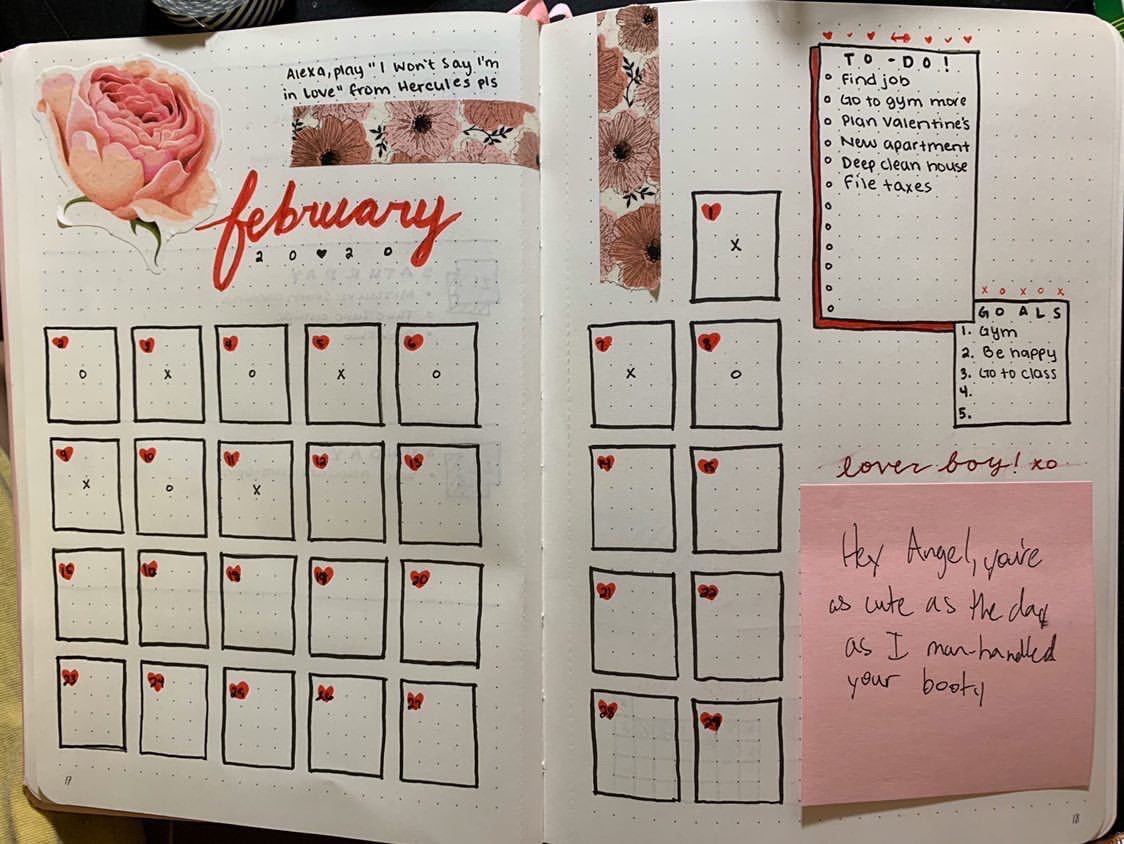 Alexa, play "I Won't Say I'm
in Love" from Hercules pls
february
20♥20
1
X
2
O
3
X
4
O
5
X
6
O
7
X
8
O
9
X
10
O
11
X
12
13
14
15
18
19
20
21
22
23
24
25
26
27
28
29
17
TO-DO!
Find job
Go to gym more
Plan Valentine's
New apartment
Deep clean house
File taxes
X O X O X
GOALS
1. Gym
2. Be happy
3. Go to class
4.
5.
lover boy! xo
Hey Angel, you're
as cute as the day
as I man-handled
your booty
18